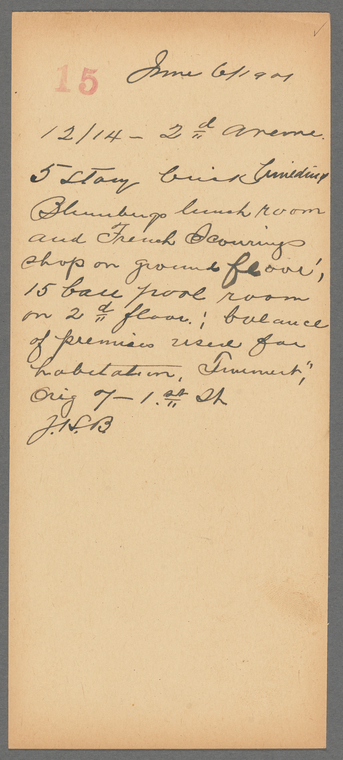 15
June 6/1901
12/14 - 2d Avenue.
5 story brick building
Blumbergs lunch room
and French Scouring
shop on ground floor;
15 ball pool room
on 2d floor.; balance
of premises used for
habitation, "Tenement",
Orig 7 - 1.st St
J.H.B